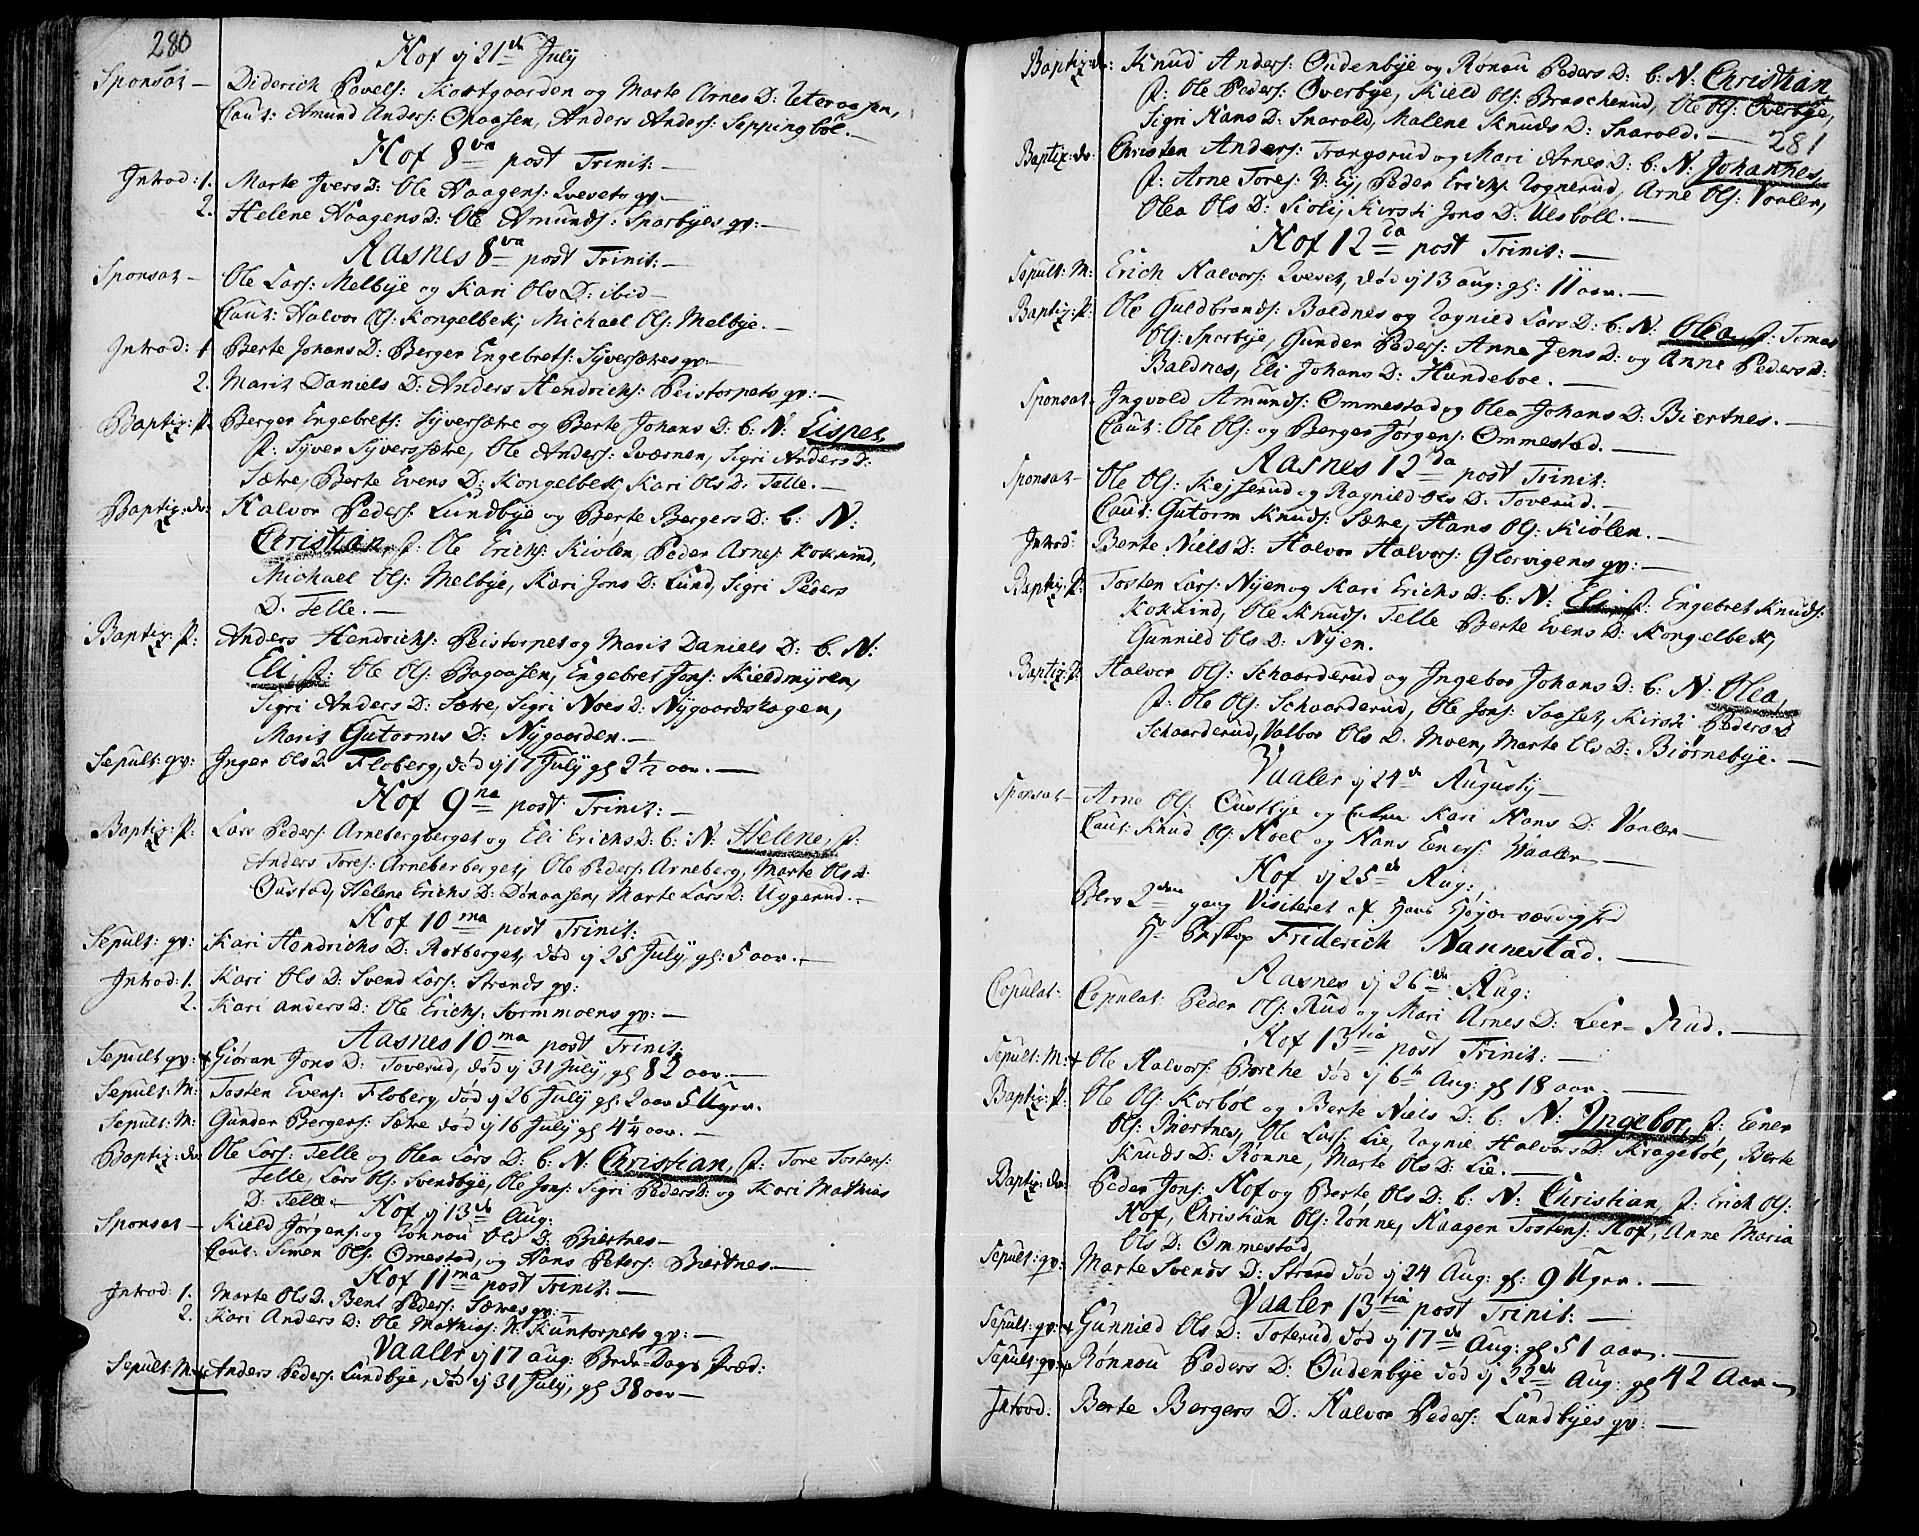 280
Hof d 21de July
Sponsat — Diderich Povels: Kostgaarden og Marte Arnes D: Uteraasen,
Caut: Amund Anders: Opaasen, Anders Anders: Seppingbøl. —
Hof 8va post Trinit: —
Introd: 1. Marte Ivers D: Ole Haagens: Qvevets qv: —
2. Helene Haagens D: Ole Amunds: Sparbyes qv: —
Aasnes 8va post Trinit: —
Sponsat — Ole Lars: Melbye og Kari Ols D: ibid —
Caut: Halvor Ols: Kongelbek, Michael Ols: Melbye. —
Introd: 1 Berte Johans D: Berger Engebrets: Syversætres qv: —
2. Marit Daniels D: Anders Hendrichs: Peistorpets qv: —
Baptiz: P. Berger Engebrets: Syversætre og Berte Johans D: b: N: Eispet,
P: Syver Syversætre, Ole Anders: Qværnen, Sigri Anders D:
Sætre, Berte Evens D: Kongelbek, Kari Ols D: Telle. —
Baptiz: dv: Halvor Peders: Lundbye og Berte Bergers D: b: N:
Christian, P: Ole Erichs: Kiølen, Peder Arnes: Kokkind,
Michael Ols: Melbye, Kari Jons D: Lund, Sigri Peders
D: Telle. —
Baptiz: P: Anders Hendrichs: Peistorpet og Marit Daniels D: b: N:
Eli, P: Ole Ols: Bagaasen, Engebret Jons: Kieldmyren,
Sigri Anders D: Sætre, Sigri Noes D: Nygaardskogen,
Marit Gutorms D: Nygaarden. —
Sepult: qv: Inger Ols D: Floberg, død d 17 July gl 2½ aar. —
Hof 9na post Trinit: —
Baptiz: P: Lars Peders: Arnebergberget og Eli Erichs D: b: N: Helene, P:
Anders Tores: Arneberberget, Ole Peders: Arneberg, Marte Ols D:
Oustad, Helene Erichs D: Dønaasen, Marte Lars D: Uggerud. —
Hof 10ma post Trinit:
Sepult: qv: Kari Hendrichs D: Rotberget, død d 25 July, gl: 5 aar. —
Introd: 1. Kari Ols D: Svend Lars: Strands qv:
2. Kari Anders D: Ole Erichs: Sormmoens qv: —
Aasnes 10ma post Trinit:
Sepult qv: + Giøran Jons D: Toverud, død d 31 July, gl 82 aar. —
Sepult: M: Tosten Evens: Floberg død d 26 July gl: 2 aar 5 Ugrr.
Sepult: M: Gunder Bergers: Sætre død d 16 July gl 4¼ aar. —
Baptiz: dv: Ole Lars: Telle og Olea Lars D: b: N: Christian, P: Tore Tostens:
Telle, Lars Ols: Svendbye, Ole Jons: Sigri Peders D: og Kari Mathias
D: Telle. — Hof d 13de Aug:
Sponsat — Kield Jørgens: og Rønnou Ols D: Biertnes —
Caut: Simen Ols: Ømestad, og Hans Peters: Biertnes. —
Hof 11ma post Trinit: —
Introd: 1. Marte Ols D. Bent Peders: Sætres qv: —
2. Kari Anders D: Ole Mathias: N: Kuntorpets qv: —
Vaaler d 17 aug: Bede-Dags Præd:
Sepult: M: + Anders Peders: Lundbye, død d 31 July, gl 38 aar —
Baptiz: dv: Knud Anders: Oudenbye og Rønnou Peders D: b: N: Christian
P: Ole Peders: Overbye, Kield Ols: Braskerud, Ole Ols: Overbye,
Sigri Hans D: Snarold, Malene Knuds D: Snarold. —
281
Baptiz: dv: Christen Anders: Trangsrud og Mari Arnes D: b: N: Johannes,
P: Arne Tores: V: Ey, Peder Erichs: Rognerud, Arne Ols: Vaaler,
Olea Ols D: Skoli, Kirsti Jons D: Ulsbøll. —
Hof 12da post Trinit: —
Sepult: M: Erich Halvors: Qvevet, død d 13 aug: gl: 11 aar. —
Baptiz: P: Ole Guldbrands: Baldnes og Ragnild Lars D: b: N: Olea, P: Tomas
Ols: Sparbye, Gunder Peders: Anne Jens D: og Anne Peders D:
Baldnes, Eli Johans D: Hundeboe. —
Sponsat — Ingvold Amunds: Ommestad og Olea Johans D: Biertnes. —
Caut: Ole Ols: og Berger Jørgens: Ommestad. —
Aasnes 12da post Trinit:
Sponsat — Ole Ols: Kejserud og Ragnild Ols D: Toverud. —
Caut: Gutorm Knuds: Sætre, Hans Ols: Kiølen. —
Introd: Berte Niels D: Halvor Halvors: Glorvigens qv: —
Baptiz: P: Tosten Lars: Nyen og Kari Erichs D: b: N: Eli P: Engebret Knuds:
Kokkind, Ole Knuds: Telle Berte Evens D: Kongelbek,
Gunnild Ols D: Nyen.
Baptiz: P: Halvor Ols: Schaarderud og Ingebor Johans D: b: N: Olea,
P: Ole Ols: Schaarderud, Ole Jons: Saaset, Kirsti Peders D
Schaarderud, Valbor Ols D. Moen, Marte Ols D: Biørnebye. —
Vaaler d 24de Augusty —
Sponsat — Arne Ols: Oustbye og Kari Hans D: Vaaler —
Caut: Knud Ols: Hoel og Hans Eeners: Vaaler —
Hof d 25de Aug:
Blev 2den gang Visiteret af Hans Højærværdighed
Hr Biskop Friderich Nannestad. —
Aasnes d 26de Aug:
Copulat: Copulat: Peder Ols: Rud og Mari Arnes D: Leer-Rud. —
Hof 13tia post Trinit: —
Sepult: M: + Ole Halvors: Borthe død d 6te Aug: gl 18 aar. —
Baptiz: P: Ole Ols: Korbøl og Berte Niels D: b: N: Ingebor, P: Eener
Ols: Biertnes, Ole Lars: Lie, Ragnil Halvors D: Kragebøl, Berte
Knuds D: Rønne, Marte Ols D: Lie. —
Baptiz: dv: Peder Jons: Hof og Berte Ols D: b: N: Christian, P: Erich Ols:
Hof, Christian Ols: Rønne, Haagen Tostens: Hof, Anne Maria
Ols D: Ommestad,
Sepult: qv: Marte Svends D: Strand død d 24 Aug: gl: 9 Ugrr. —
Vaaler 13tia post Trinit: —
Sepult: qv: + Gunnild Ols D: Toterud, død d 17de Aug: gl 51 aar. —
Sepult: qv: + Rønnou Peders D: Oudenbye død d 22de Aug: gl 42 Aar —
Introd: Berte Bergers D: Halvor Peders: Lundbyes qv: —